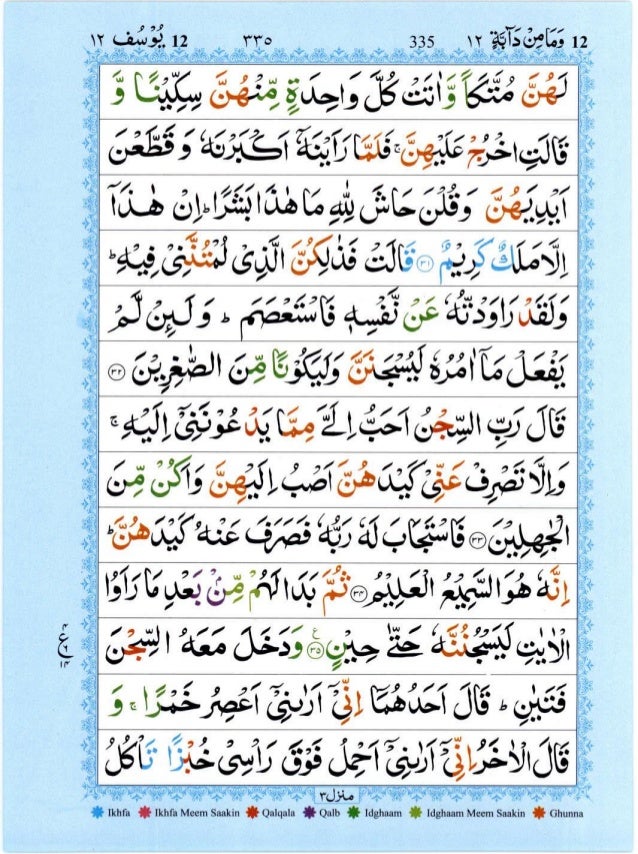 12 يُوْسُف ١٢ ٣٣٥ 335 وَمَا مِنْ دَآبَّةٍ ١٢ 12
لَهُنَّ مُتَّكَاً وَّاٰتَتْ كُلَّ وَاحِدَةٍ مِّنْهُنَّ سِكِّيْنًا وَّ
قَالَتِ اخْرُجْ عَلَيْهِنَّ ۚ فَلَمَّا رَاَيْنَهٗۤ اَكْبَرْنَهٗ وَ قَطَّعْنَ
اَيْدِيَهُنَّ وَقُلْنَ حَاشَ لِلّٰهِ مَا هٰذَا بَشَرًا ؕ اِنْ هٰذَاۤ
اِلَّا مَلَكٌ كَرِيْمٌ ﴿۳۱﴾ قَالَتْ فَذٰلِكُنَّ الَّذِىْ لُمْتُنَّنِىْ فِيْهِ ؕ
وَلَقَدْ رَاوَدْتُّهٗ عَنْ نَّفْسِهٖ فَاسْتَعْصَمَ ؕ وَلَئِنْ لَّمْ
يَفْعَلْ مَاۤ اٰمُرُهٗ لَيُسْجَنَنَّ وَلَيَكُوْنًا مِّنَ الصّٰغِرِيْنَ ﴿۳۲﴾
قَالَ رَبِّ السِّجْنُ اَحَبُّ اِلَىَّ مِمَّا يَدْعُوْنَنِىْۤ اِلَيْهِ ۚ
وَاِلَّا تَصْرِفْ عَنِّىْ كَيْدَهُنَّ اَصْبُ اِلَيْهِنَّ وَاَكُنْ مِّنَ
الْجٰهِلِيْنَ ﴿۳۳﴾ فَاسْتَجَابَ لَهٗ رَبُّهٗ فَصَرَفَ عَنْهُ كَيْدَهُنَّ ؕ
اِنَّهٗ هُوَ السَّمِيْعُ الْعَلِيْمُ ﴿۳۴﴾ ثُمَّ بَدَا لَهُمْ مِّنْۢ بَعْدِ مَا رَاَوُا
الْاٰيٰتِ لَيَسْجُنُنَّهٗ حَتّٰى حِيْنٍ ﴿۳۵﴾ ع وَدَخَلَ مَعَهُ السِّجْنَ
٤ ع ٦ ١٤
فَتَيٰنِ ؕ قَالَ اَحَدُهُمَاۤ اِنِّىْۤ اَرٰىنِىْۤ اَعْصِرُ خَمْرًا ۚ وَ
قَالَ الْاٰخَرُ اِنِّىْۤ اَرٰىنِىْۤ اَحْمِلُ فَوْقَ رَاْسِىْ خُبْزًا تَاْكُلُ
منزل ٣
Ikhfa Ikhfa Meem Saakin Qalqala Qalb Idghaam Idghaam Meem Saakin Ghunna